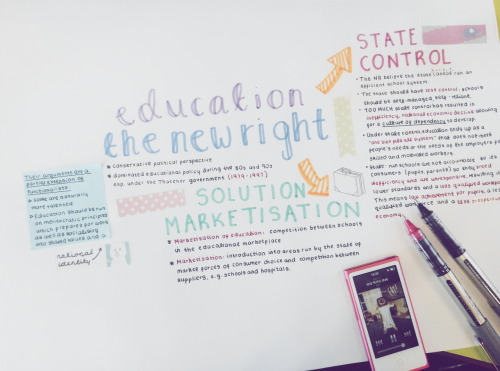 education
the new right
• Conservative political perspective
• dominated educational policy during the 80s and 90s
esp. under the Thatcher government (1979-1997)
Their arguments are a
partial extension of
functionalists
• Some are naturally
more talented
• Education should be run
on meritocratic principles
which prepares for work
as well as socialising
into shared values and a
national
identity
SOLUTION
MARKETISATION
• Marketisation of education: competition between schools
in the educational marketplace
• Marketisation: introduction into areas run by the state of
market forces of consumer choice and competition between
suppliers, e.g. schools and hospitals.
STATE
CONTROL
• The NR believe the state cannot run an
efficient school system.
• The state should have less control, schools
should be self-managed, self-reliant.
• TOO MUCH state control has resulted in
inefficiency, national economic decline allowing
for a culture of dependency to develop.
• Under state control, education ends up as a
"one size fits all system" that does not meet
people's needs or the needs of the employers for
skilled and motivated workers.
• State run schools are not accountable to its
consumers (pupils, parents) so they breed
inefficiency and are unresponsive, resulting in
lower standards and a less qualified workforce
This means low achievement for pupils, a less
qualified workforce and a less
economy.